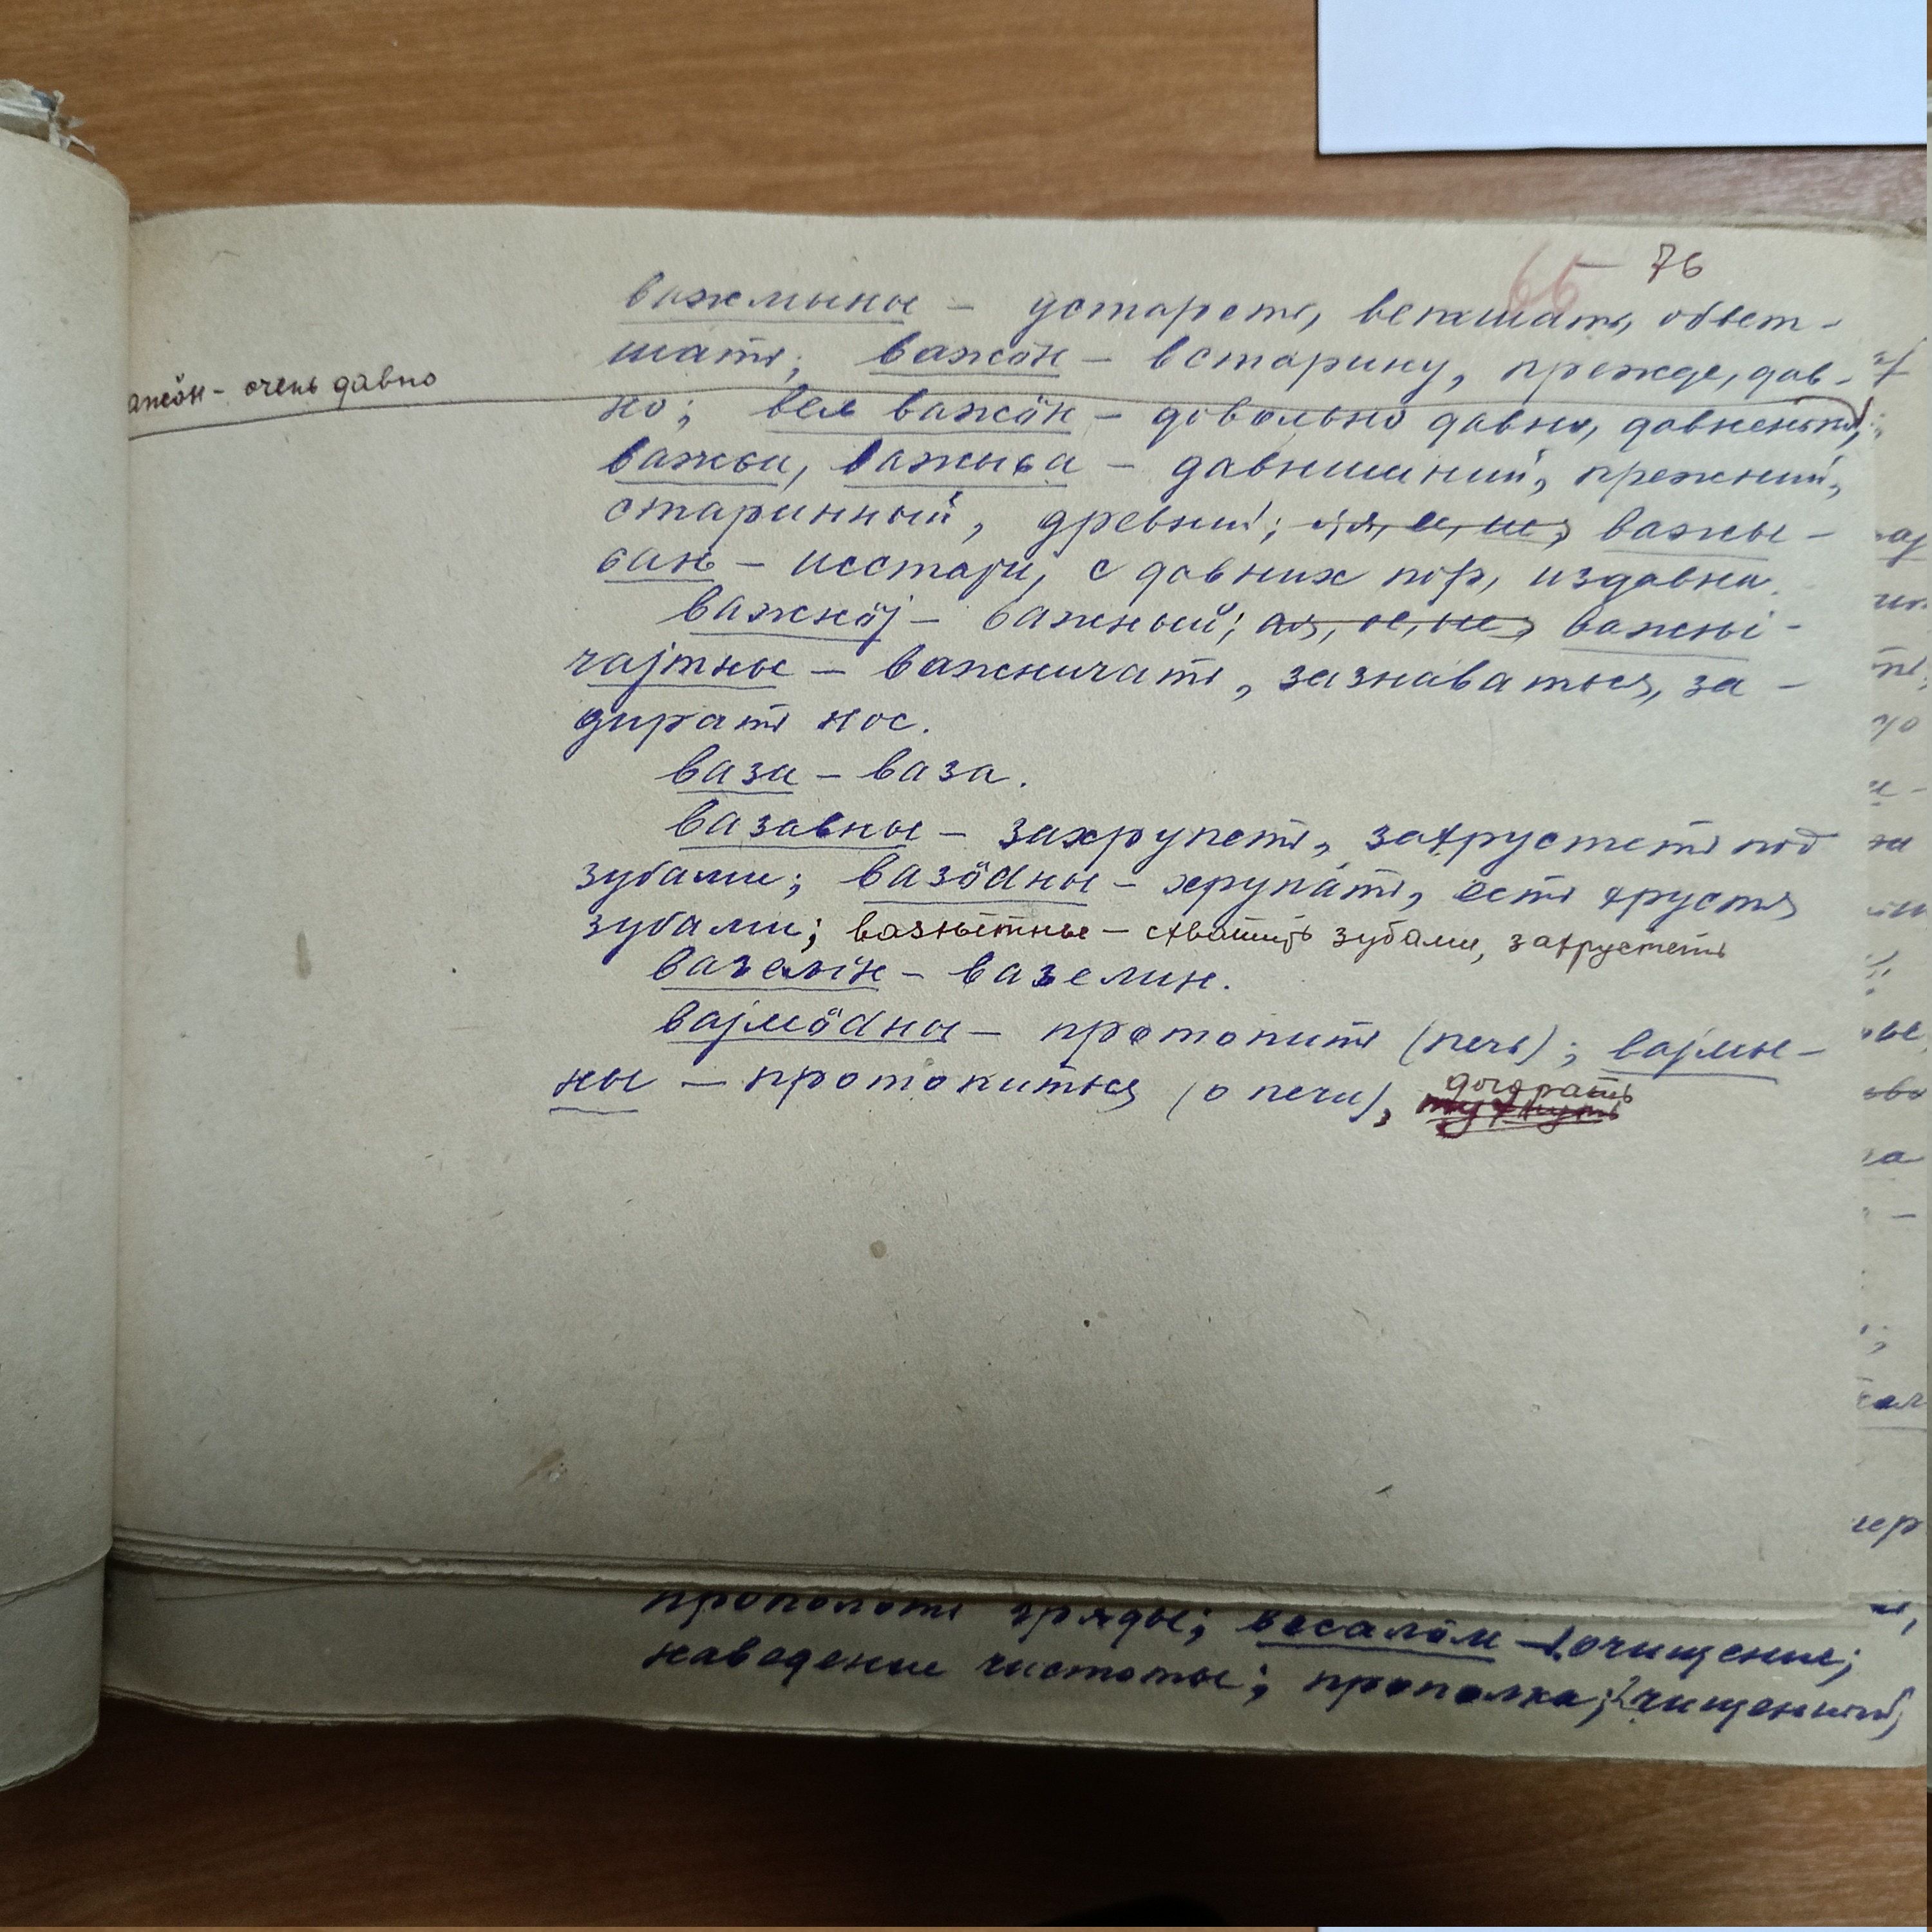 65 76
важмыны – устареть, ветшать, обвет-
шать; важӧн – встарину, прежде, дав-
ажӧн – очень давно
но; вел важӧн – довольно давно, давненько;
важыс, важыса – давнишний, прежний,
старинный, древний; ая, ое, ие, важы-
сянь – исстари, с давних пор, издавна.
важнӧј – важный; ая, ое, ие, важні-
чајтны – важничать, зазнаваться, за-
дирать нос.
ваза – ваза.
вазавны – захрупеть, захрустеть под
зубами; вазӧдны – хрупать, есть хрустя
зубами; вазнытны – схватить зубами, захрустеть
вазелін – вазелин.
вајмӧдны – протопить (печь); вајмы-
ны – протопиться (о печи), догорать
прополоть гряды; весалӧм – очищение;
наведение чистоты; прополка; чищенный;